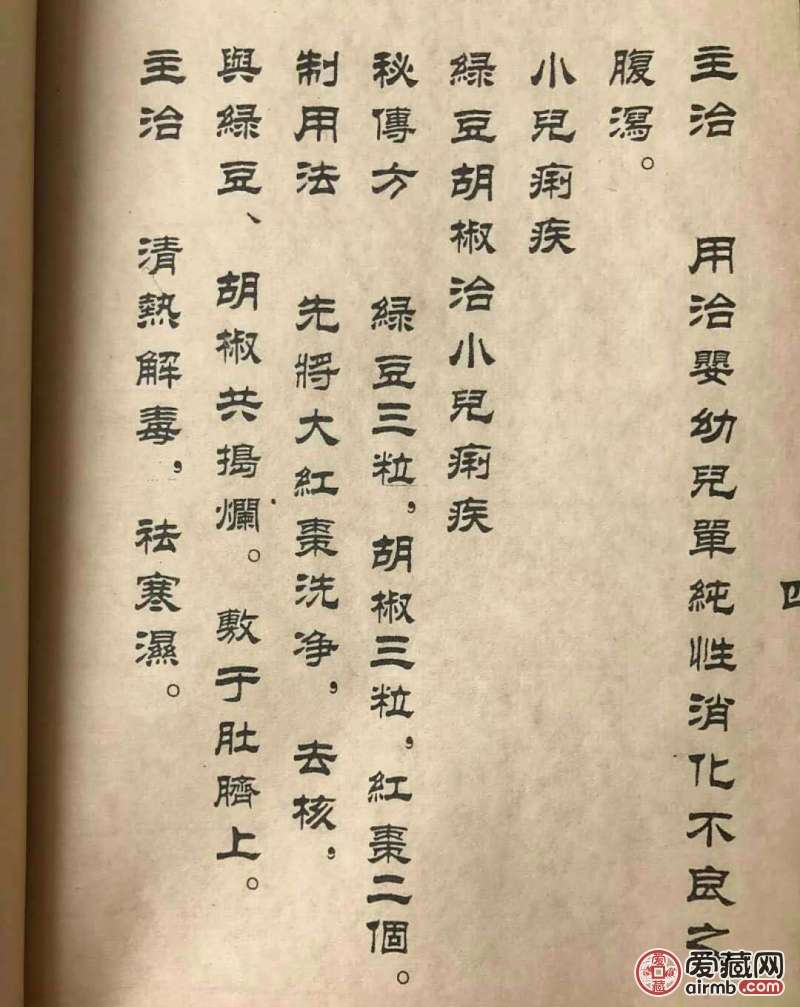 主治　用治嬰幼兒單純性消化不良之
腹瀉。
小兒痢疾
綠豆胡椒治小兒痢疾
秘傳方　綠豆三粒，胡椒三粒，紅棗二個。
制用法　先將大紅棗洗净，去核，
與綠豆、胡椒共搗爛。敷于肚臍上。
主治　清熱解毒，祛寒濕。
爱藏网
airmb.com